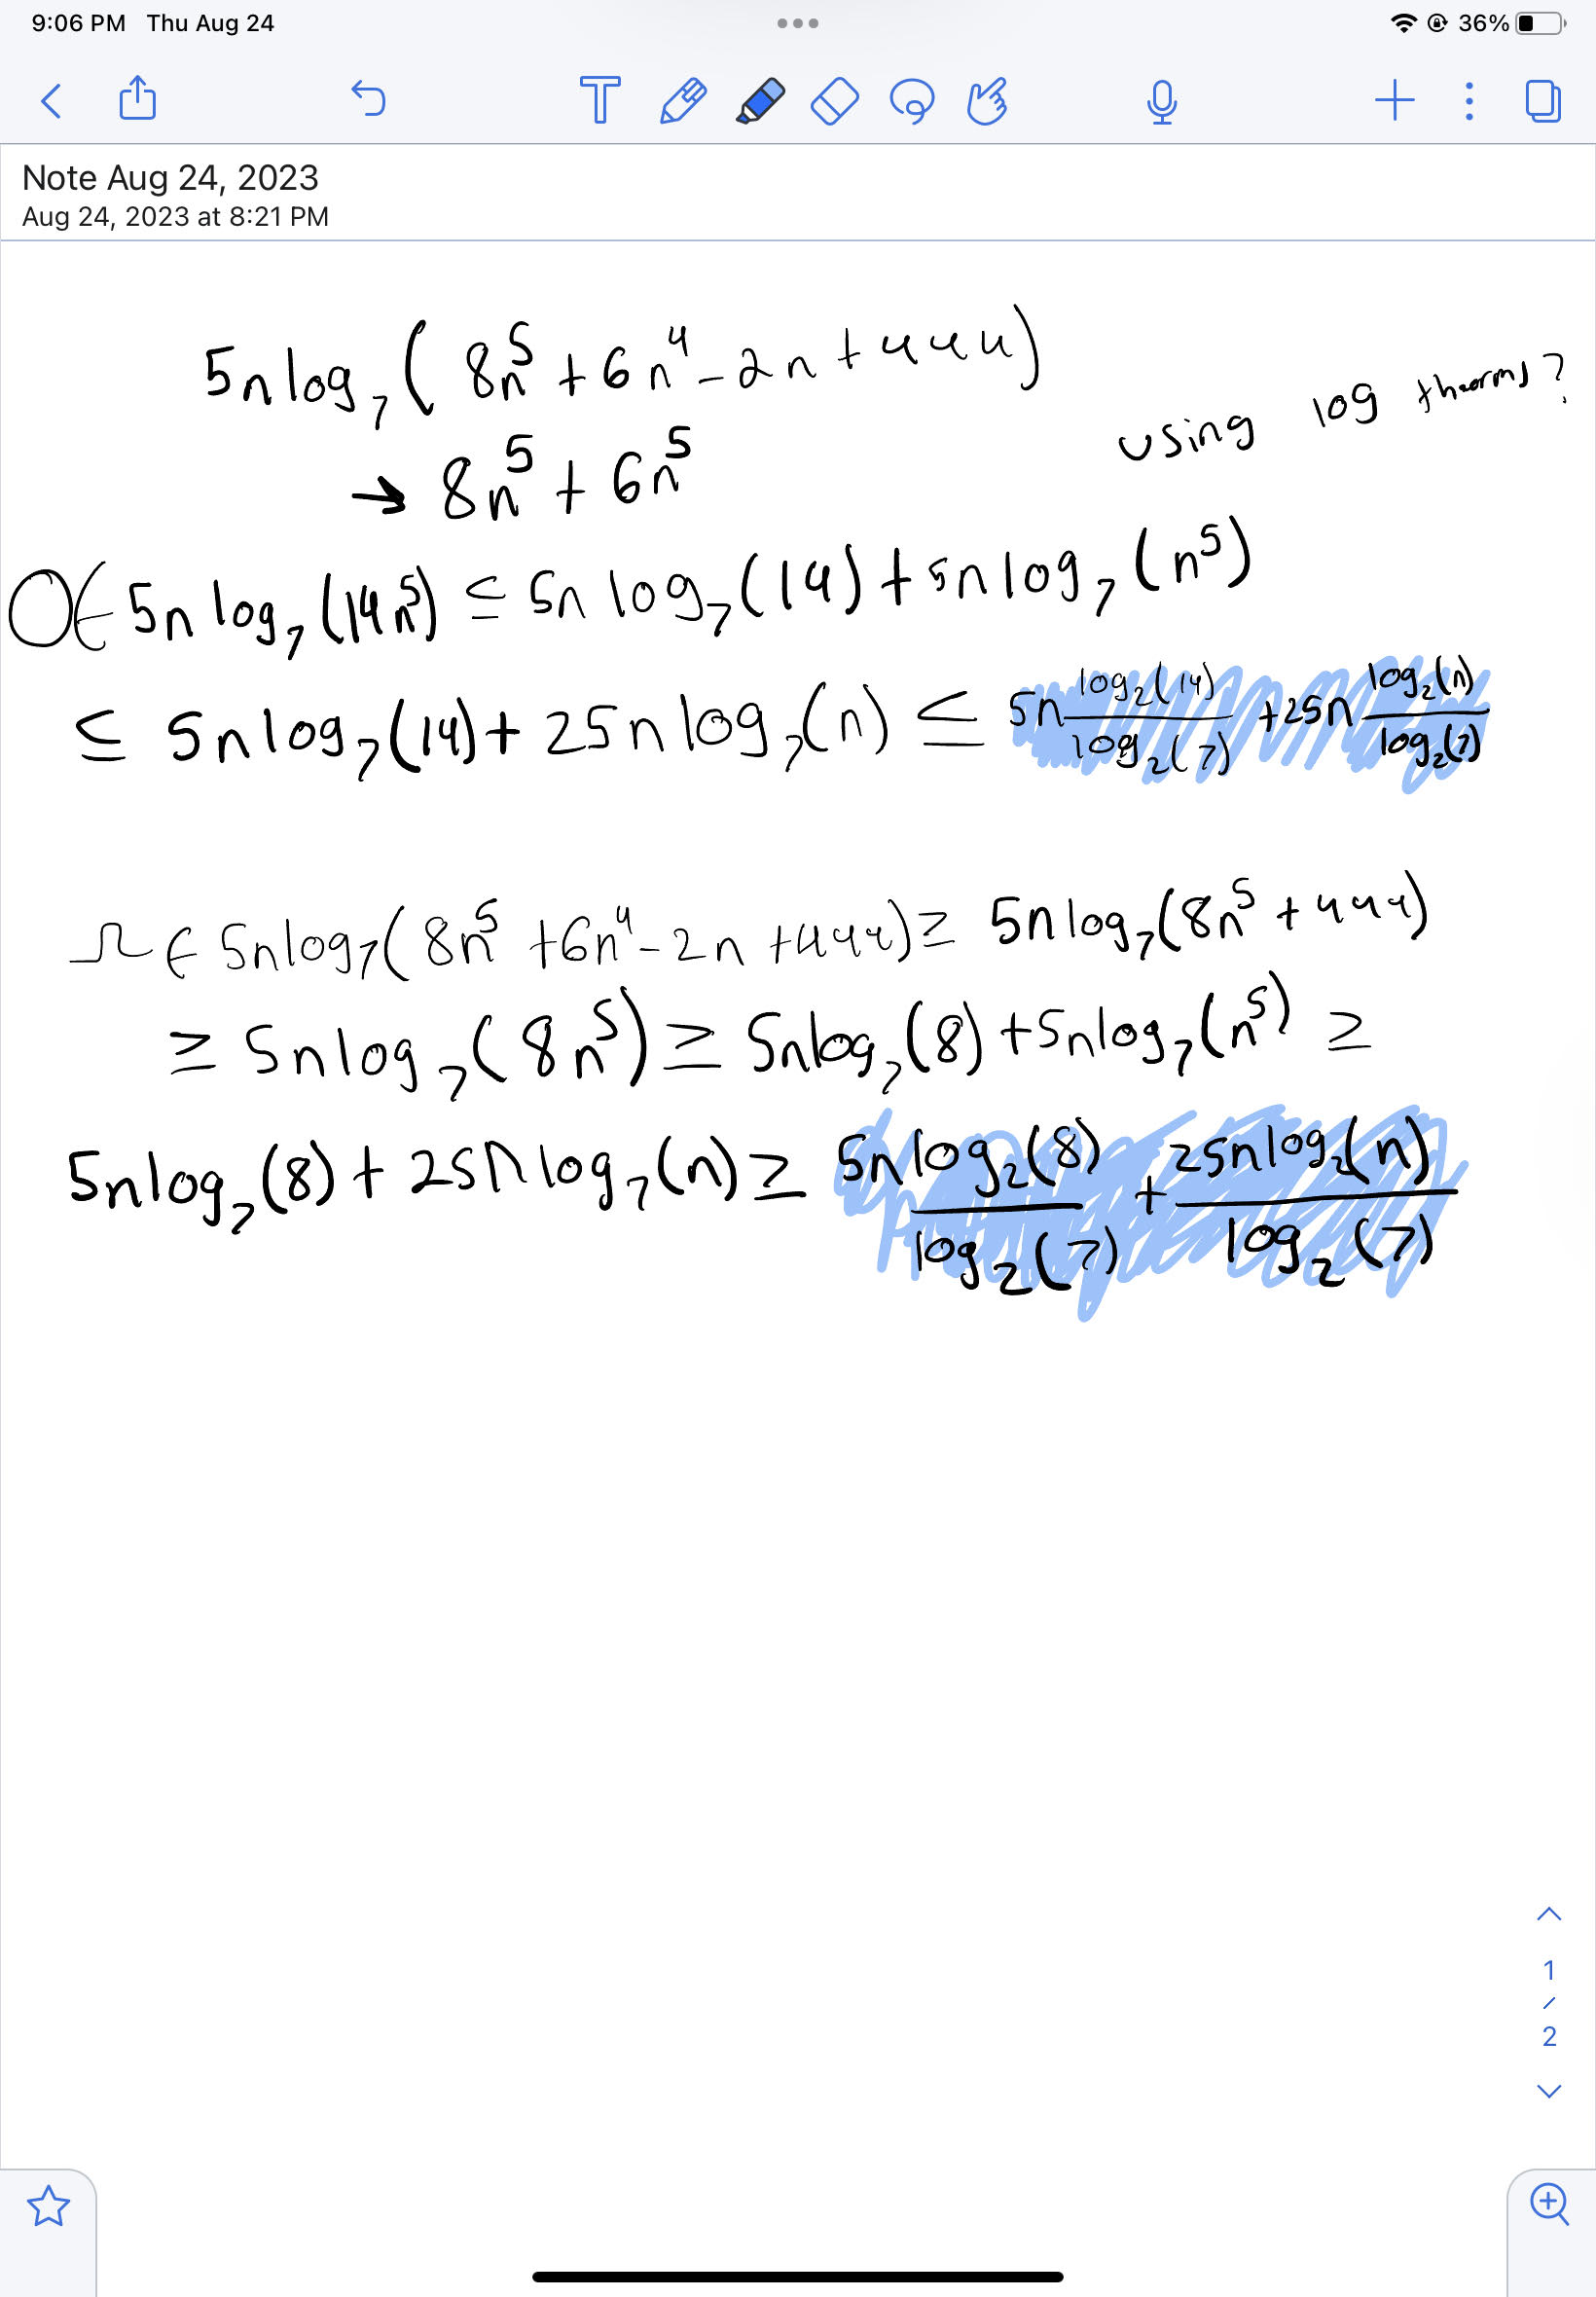 9:06 PM Thu Aug 24
36%
Note Aug 24, 2023
Aug 24, 2023 at 8:21 PM
5n log₇( 8n⁵ + 6n⁴ - 2n + 444)
using log theorms?
→ 8n⁵ + 6n⁵
O∈ 5n log₇(14n⁵) ≤ 5n log₇(14) + 5n log₇(n⁵)
≤ 5n log₇(14) + 25n log₇(n) ≤ 5n log₂(14)/log₂(7) + 25n log₂(n)/log₂(7)
Ω ∈ 5n log₇( 8n⁵ + 6n⁴ - 2n + 444) ≥ 5n log₇(8n⁵ + 444)
≥ 5n log₇( 8n⁵) ≥ 5n log₇(8) + 5n log₇(n⁵) ≥
5n log₇(8) + 25n log₇(n) ≥ 5n log₂(8)/log₂(7) + 25n log₂(n)/log₂(7)
1
/
2